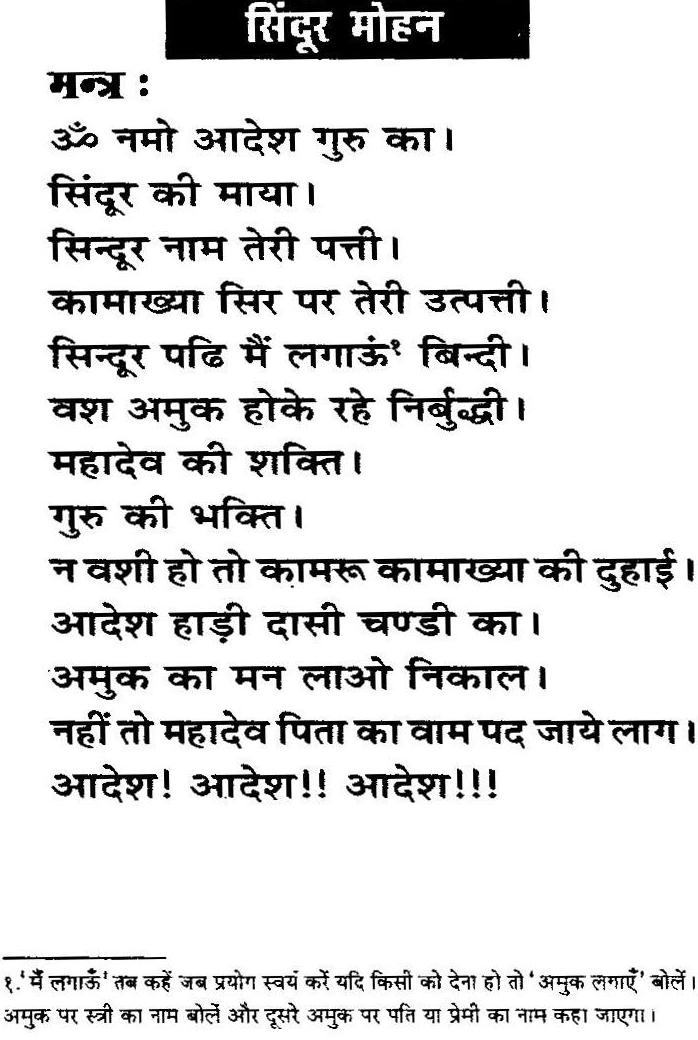 सिंदूर मोहन
मन्त्र :
ॐ नमो आदेश गुरु का।
सिंदूर की माया।
सिन्दूर नाम तेरी पत्ती।
कामाख्या सिर पर तेरी उत्पत्ती।
सिन्दूर पढि मैं लगाऊं१ बिन्दी।
वश अमुक होके रहे निर्बुद्धी।
महादेव की शक्ति।
गुरु की भक्ति।
न वशी हो तो कामरू कामाख्या की दुहाई।
आदेश हाड़ी दासी चण्डी का।
अमुक का मन लाओ निकाल।
नहीं तो महादेव पिता का वाम पद जाये लाग।
आदेश! आदेश!! आदेश!!!
१. ‘मैं लगाऊँ’ तब कहें जब प्रयोग स्वयं करें यदि किसी को देना हो तो ‘अमुक लगाएँ’ बोलें।
अमुक पर स्त्री का नाम बोलें और दूसरे अमुक पर पति या प्रेमी का नाम कहा जाएगा।